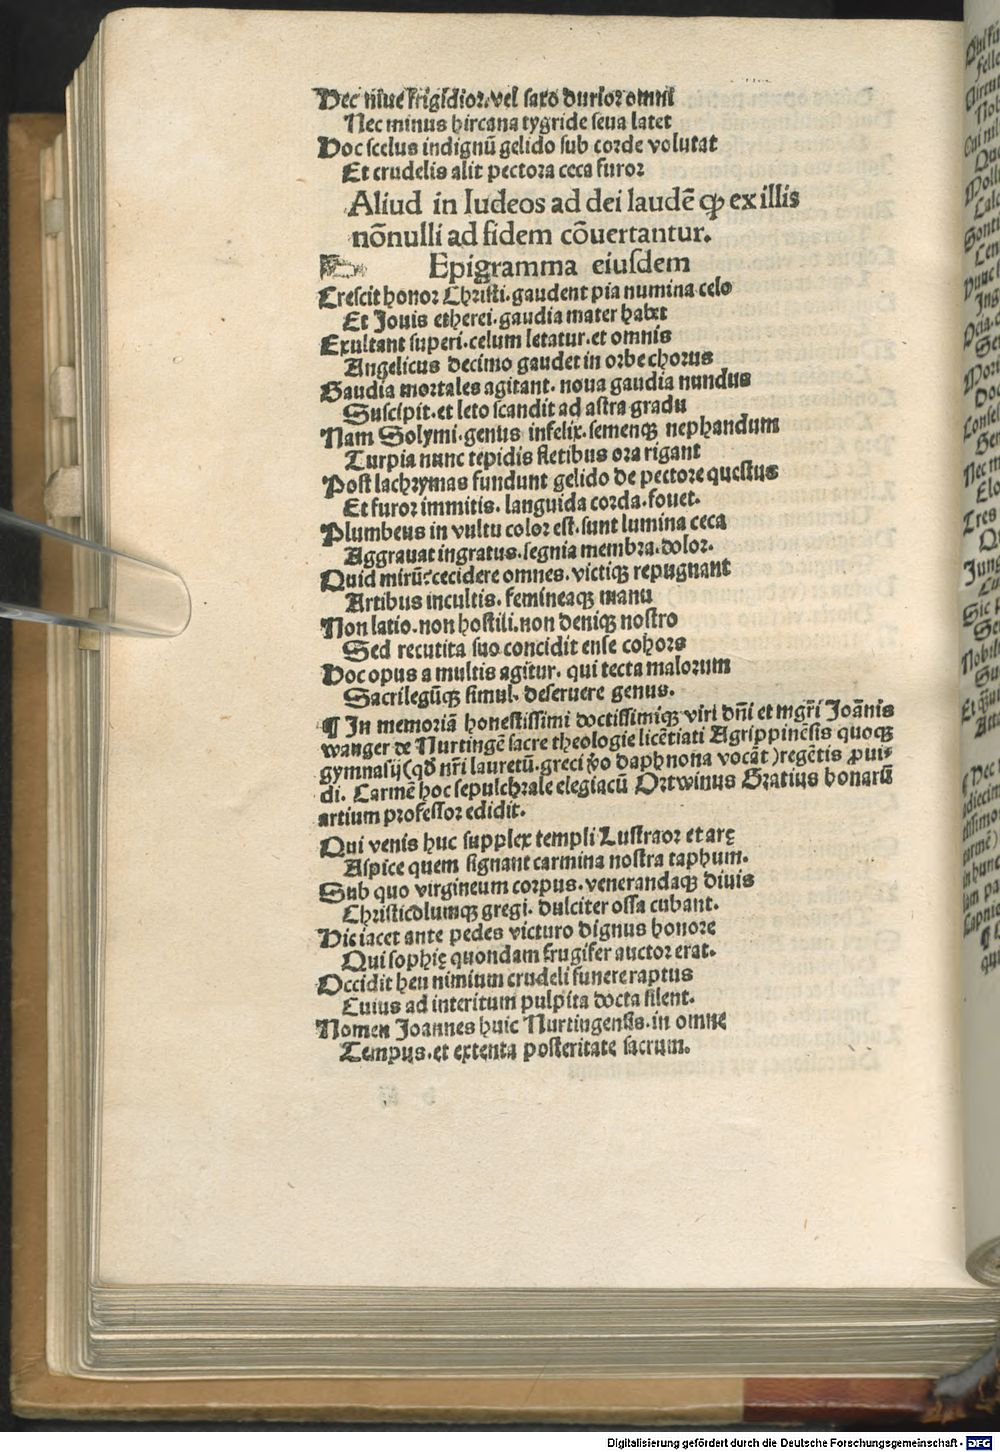 Hec niue frigidior. vel saxo durior omni
Nec minus hircana tygride seua latet
Hoc scelus indignū gelido sub corde volutat
Et crudelis alit pectora ceca furor
Aliud in Iudeos ad dei laudē ꝙ ex illis
nōnulli ad fidem cōuertantur.
Epigramma eiusdem
Crescit honor Christi. gaudent pia numina celo
Et Iouis etherei. gaudia mater habet
Exultant superi. celum letatur. et omnis
Angelicus decimo gaudet in orbe chorus
Gaudia mortales agitant. noua gaudia nundus
Suscipit. et leto scandit ad astra gradu
Nam Solymi. genus infelix. semenqꝫ nephandum
Turpia nunc tepidis fletibus ora rigant
Post lachrymas fundunt gelido de pectore questus
Et furor immitis. languida corda. fouet.
Plumbeus in vultu color est. sunt lumina ceca
Aggrauat ingratus. segnia membra. dolor.
Quid mirū? cecidere omnes. victiqꝫ repugnant
Artibus incultis. femineaqꝫ manu
Non latio. non hostili. non deniqꝫ nostro
Sed recutita suo concidit ense cohors
Hoc opus a multis agitur. qui tecta malorum
Sacrilegūqꝫ simul. deseruere genus.
¶ In memoriā honestissimi doctissimiqꝫ viri dñi et mgr̄i Joānis
wanger de Nurtingē sacre theologie licētiati Agrippinēsis quoqꝫ
gymnasij (qd̄ nr̄i lauretū. greci ꝟo daphnona vocāt) regētis ꝓui-
di. Carmē hoc sepulchrale elegiacū Ortwinus Gratius bonarū
artium professor edidit.
Qui venis huc supplex templi Lustraor et arę
Aspice quem signant carmina nostra taphum.
Sub quo virgineum corpus. venerandaqꝫ diuis
Christicolumqꝫ gregi. dulciter ossa cubant.
Hic iacet ante pedes victuro dignus honore
Qui sophię quondam frugifer auctor erat.
Occidit heu nimium crudeli funere raptus
Cuius ad interitum pulpita docta silent.
Nomen Joannes huic Nurtingensis. in omne
Tempus. et extenta posteritate sacrum.
Digitalisierung gefördert durch die Deutsche Forschungsgemeinschaft - DFG